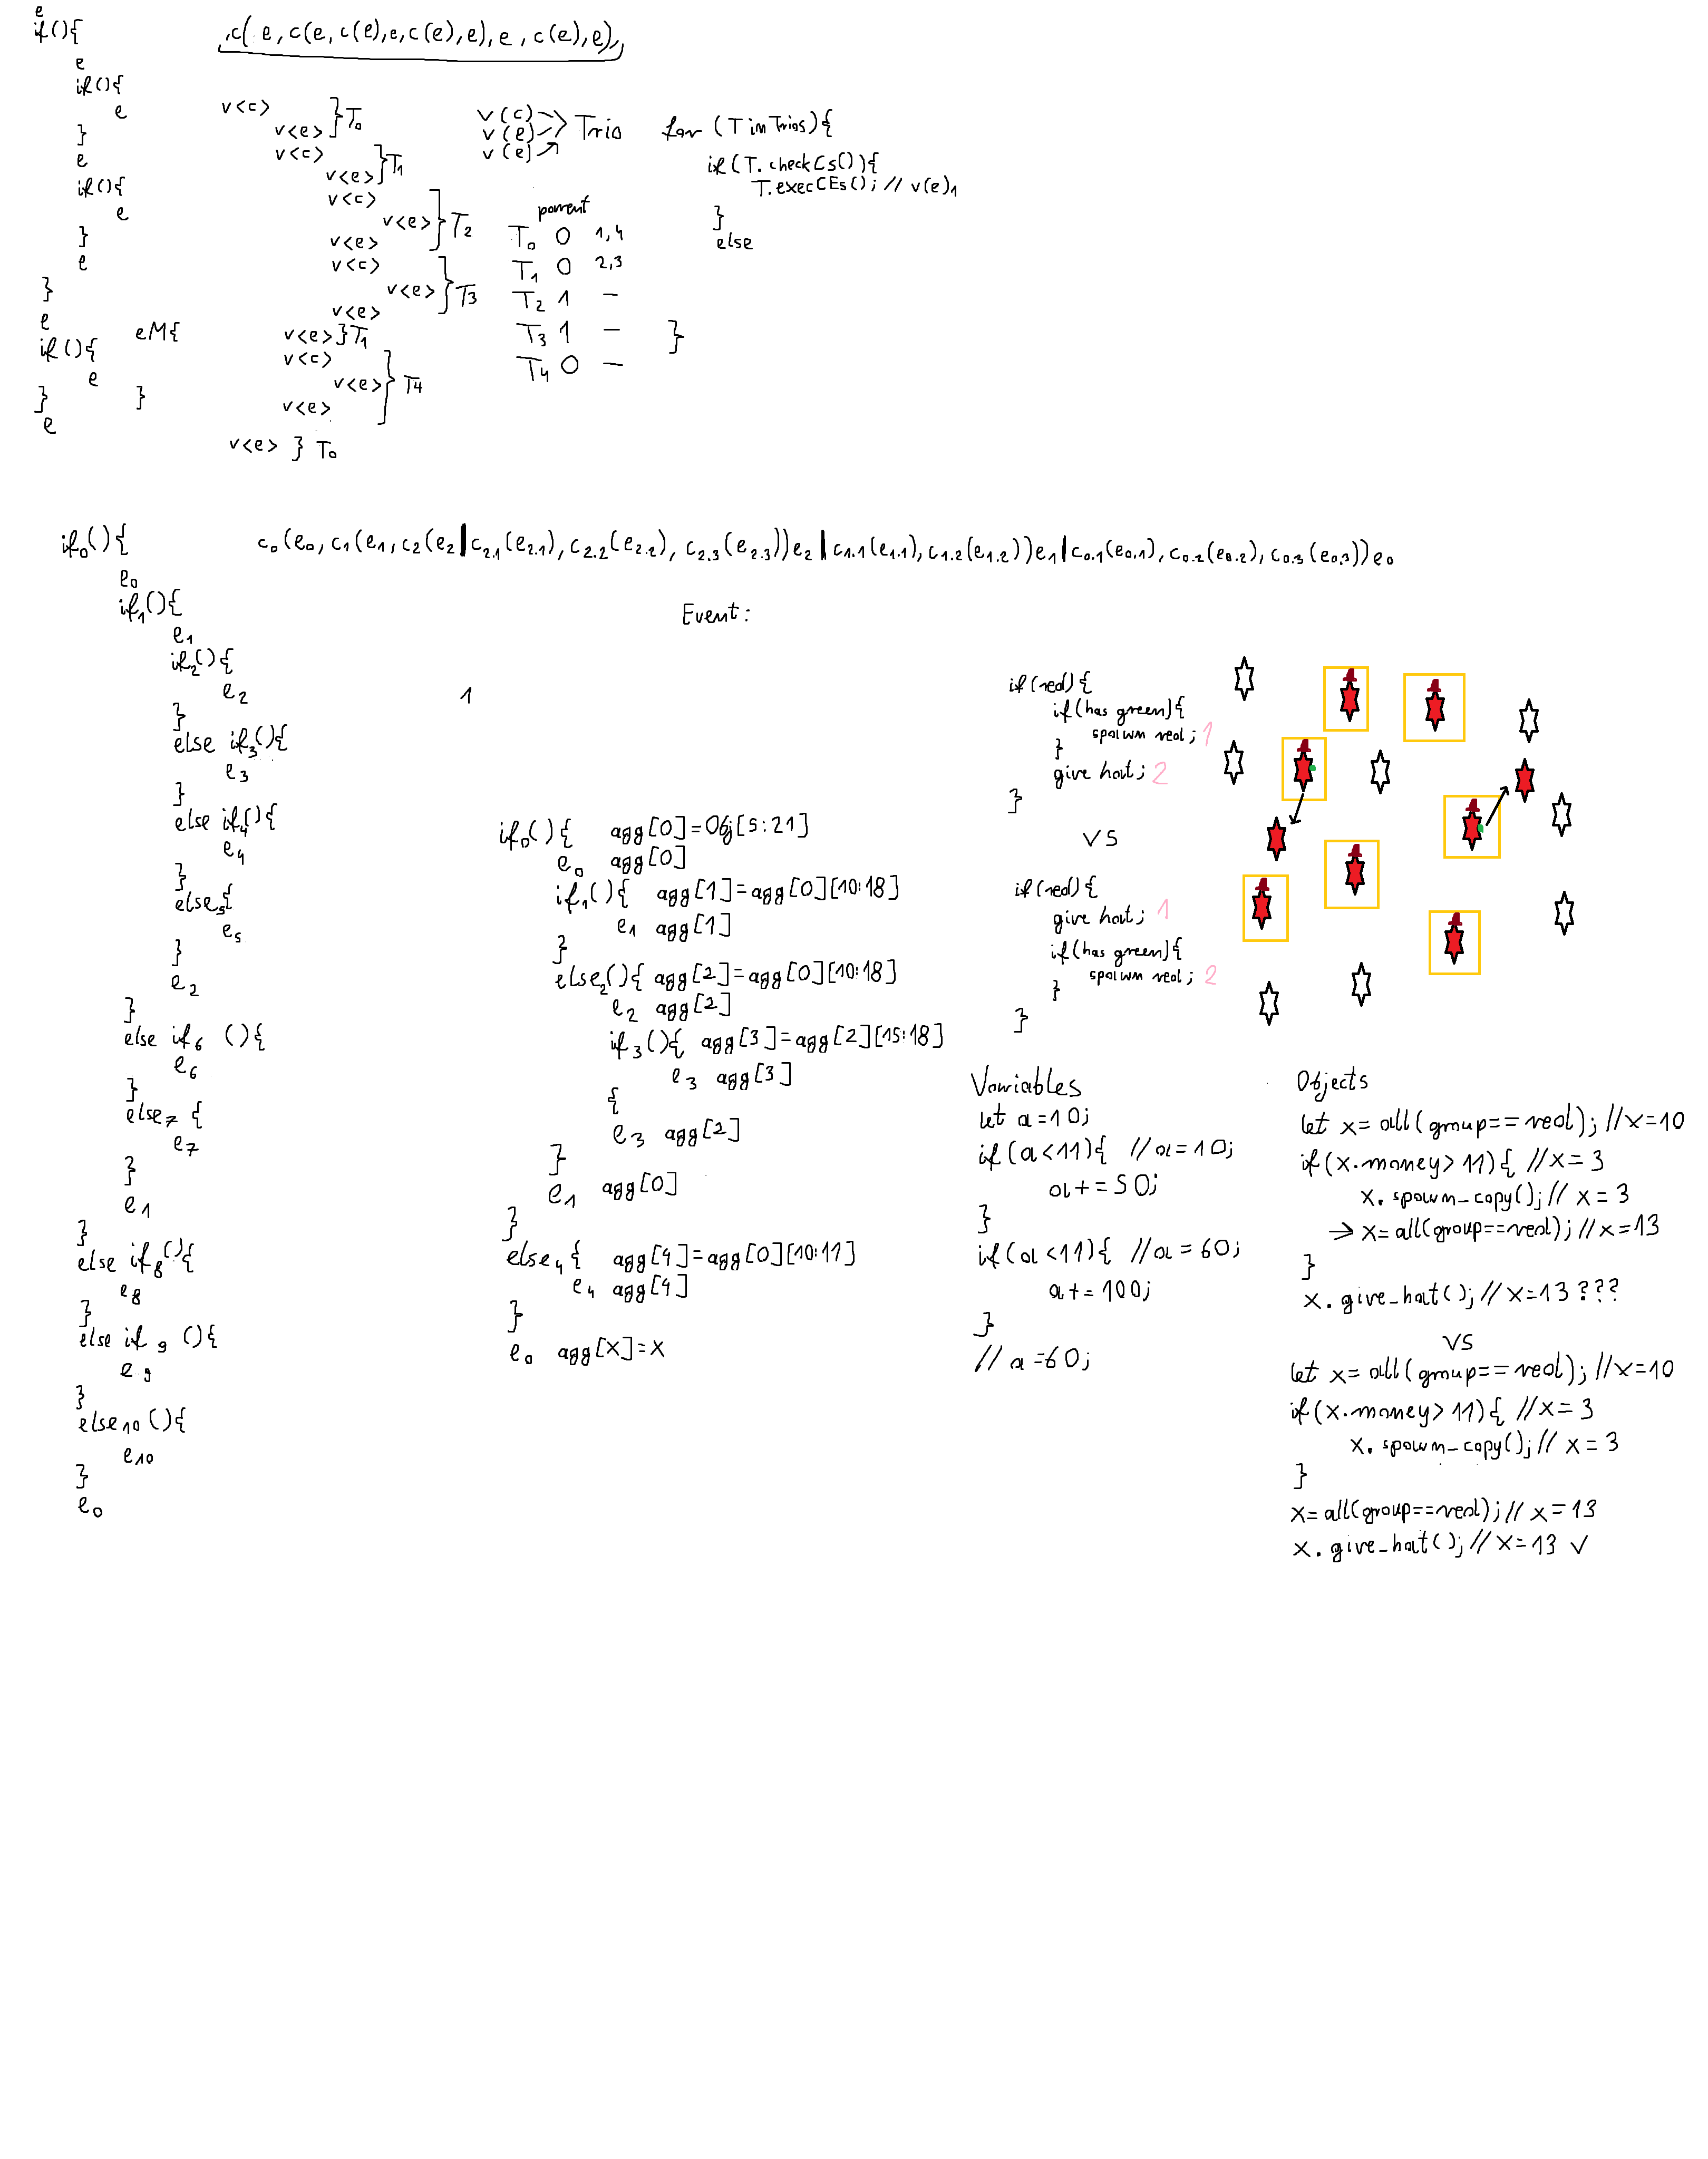 e
if(){
e
if(){
e
}
e
if(){
e
}
e
}
e
if(){
e
}
e
eM{
}
,c( e, c(e, c(e),e,c(e),e),e , c(e),e),
v<c>
v<e> } T₀
v<c>
v<e> } T₁
v<c>
v<e> } T₂
v<e>
v<c>
v<e> } T3
v<e>
v<e> } T₁
v<c>
v<e> } T4
v<e>
v<e> } T₀
v(c)
v(e) > Trio
v(e)
parent
T₀ 0 1,4
T₁ 0 2,3
T₂ 1 –
T₃ 1 –
T₄ 0 –
for (T in Trios){
if(T.checkCs()){
T.execCEs(); // v(e)₁
}
else
}
if₀(){
e₀
if₁(){
e₁
if₂(){
e₂
}
else if₃(){
e₃
}
else if₄(){
e₄
}
else₅{
e₅
}
e₂
}
else if₆ (){
e₆
}
else₇ {
e₇
}
e₁
}
else if₈(){
e₈
}
else if ₉ (){
e₉
}
else₁₀(){
e₁₀
}
e₀
c₀(e₀, c₁(e₁, c₂(e₂|c₂.₁(e₂.₁), c₂.₂(e₂.₂), c₂.₃(e₂.₃))e₂|c₁.₁(e₁.₁), c₁.₂(e₁.₂))e₁|c₀.₁(e₀.₁), c₀.₂(e₀.₂), c₀.₃(e₀.₃))e₀
Event:
1
if₀(){ agg[0]=Obj[5:21]
e₀ agg[0]
if₁(){ agg[1]=agg[0][10:18]
e₁ agg[1]
}
else₂(){ agg[2]=agg[0][10:18]
e₂ agg[2]
if₃(){ agg[3]=agg[2][15:18]
e₃ agg[3]
{
e₃ agg[2]
}
e₁ agg[0]
}
else₄{ agg[4]=agg[0][10:11]
e₄ agg[4]
}
e₀ agg[x]=x
if(red){
if(has green){
spawn red; 1
}
give hat; 2
}
VS
if(red){
give hat; 1
if(has green){
spawn red; 2
}
}
Variables
let a=10;
if(a<11){ //a=10;
a+=50;
}
if(a<11){ //a=60;
a+=100;
}
// a=60;
Objects
let x= all(group==red); //x=10
if(x.money>11){ //x=3
x.spawn_copy(); // x=3
→ x=all(group==red); //x=13
}
x.give_hat(); // x=13 ???
VS
let x= all(group==red); //x=10
if(x.money>11){ //x=3
x.spawn_copy(); // x=3
}
x=all(group==red); // x=13
x.give_hat(); // x=13 ✓